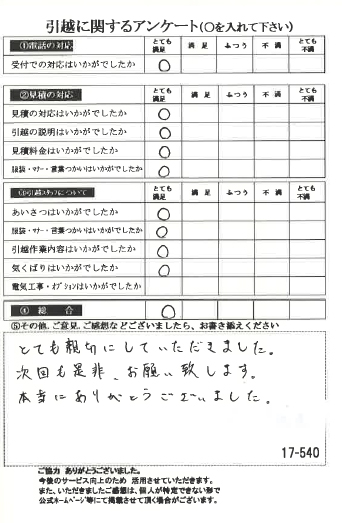 引越に関するアンケート(○を入れて下さい)
①電話の対応 とても満足 満足 ふつう 不満 とても不満
受付での対応はいかがでしたか ○
②見積の対応 とても満足 満足 ふつう 不満 とても不満
見積の対応はいかがでしたか ○
引越の説明はいかがでしたか ○
見積料金はいかがでしたか ○
服装・マナー・言葉つかいはいかがでしたか ○
③引越スタッフについて とても満足 満足 ふつう 不満 とても不満
あいさつはいかがでしたか ○
服装・マナー・言葉つかいはいかがでしたか ○
引越作業内容はいかがでしたか ○
気くばりはいかがでしたか ○
電気工事・オプションはいかがでしたか
④総合 ○
⑤その他、ご意見、ご感想などございましたら、お書き添えください
とても親切にしていただきました。
次回も是非、お願い致します。
本当にありがとうございました。
17-540
ご協力 ありがとうございました。
今後のサービス向上のため 活用させていただきます。
また、いただきましたご感想は、個人が特定できない形で
公式ホームページ等にて掲載させて頂く場合がございます。